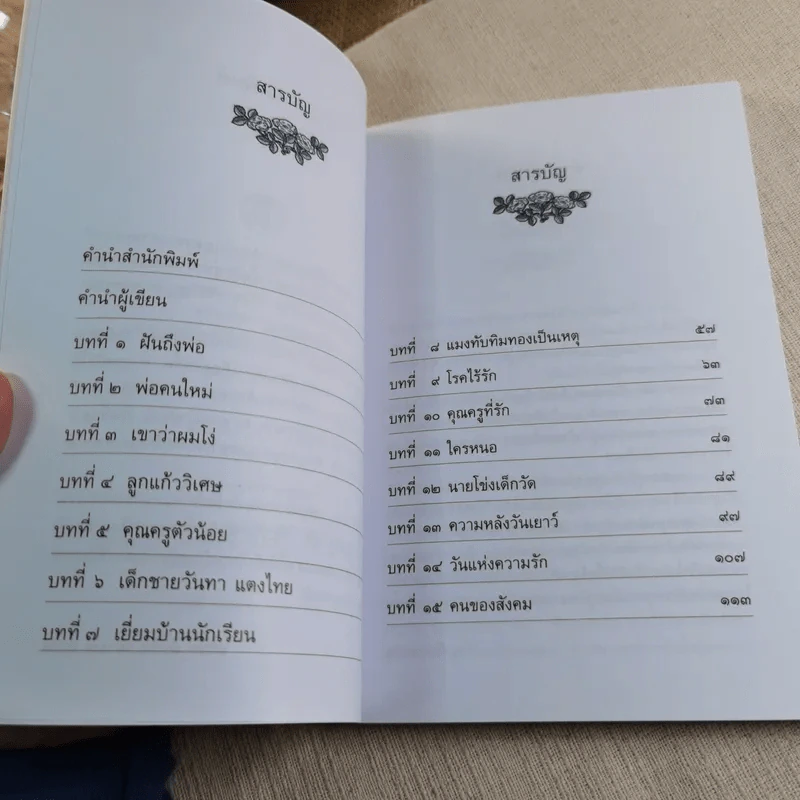 สารบัญ
คำนำสำนักพิมพ์
คำนำผู้เขียน
บทที่ ๑ ฝันถึงพ่อ
บทที่ ๒ พ่อคนใหม่
บทที่ ๓ เขาว่าผมโง่
บทที่ ๔ ลูกแก้ววิเศษ
บทที่ ๕ คุณครูตัวน้อย
บทที่ ๖ เด็กชายวันทา แตงไทย
บทที่ ๗ เยี่ยมบ้านนักเรียน
สารบัญ
บทที่ ๘ แมงทับทิมทองเป็นเหตุ ๕๗
บทที่ ๙ โรคไร้รัก ๖๓
บทที่ ๑๐ คุณครูที่รัก ๗๓
บทที่ ๑๑ ใครหนอ ๘๑
บทที่ ๑๒ นายโข่งเด็กวัด ๘๙
บทที่ ๑๓ ความหลังวันเยาว์ ๙๗
บทที่ ๑๔ วันแห่งความรัก ๑๐๗
บทที่ ๑๕ คนของสังคม ๑๑๓